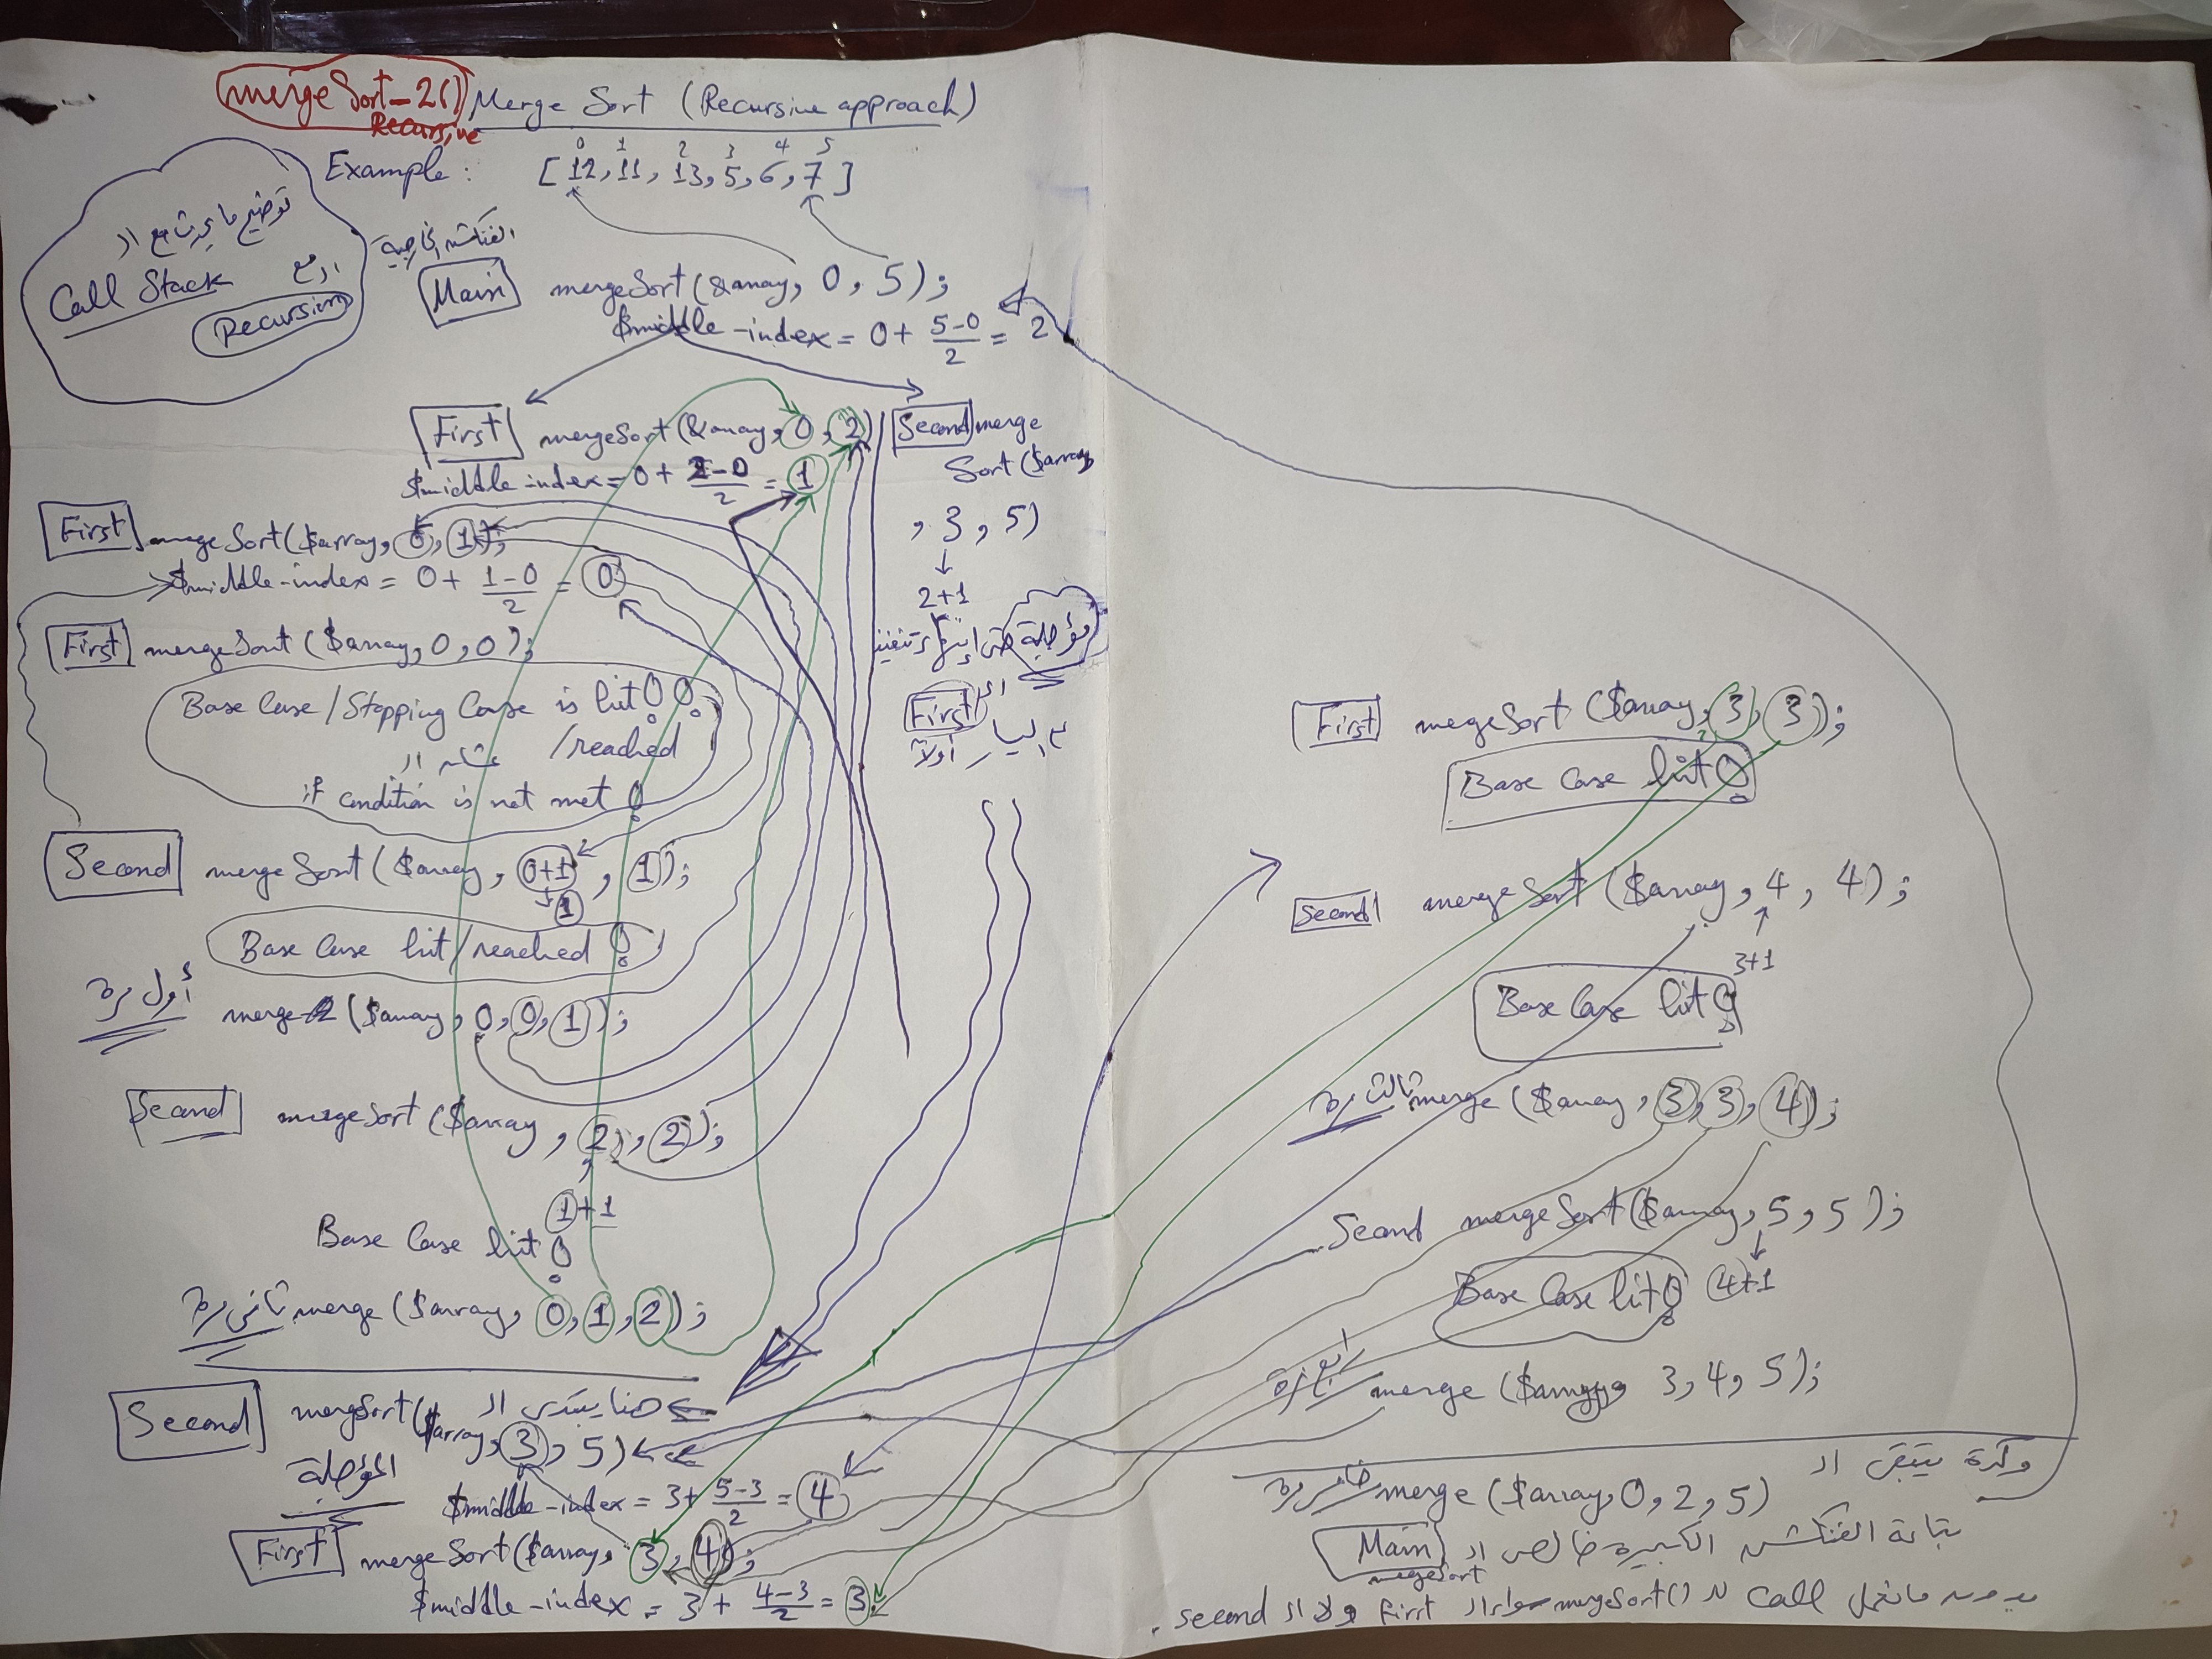 mergeSort-2() Merge Sort (Recursive approach)
Recursive
0 1 2 3 4 5
Example: [12, 11, 13, 5, 6, 7]
توضيح ما يحدث مع ال
Call Stack مع ال
Recursion
الفنكشن الخارجية
Main mergeSort(&array, 0, 5);
$middle-index = 0 + 5-0/2 = 2
First mergeSort(&array, 0, 2)
$middle-index = 0 + 2-0/2 = 1
Second merge
Sort($array
, 3, 5)
↓
2+1
مؤجلة حتى تنفيذ
ال First
اليسار أولاً
First mergeSort($array, 0, 1);
$middle-index = 0 + 1-0/2 = 0
First mergeSort($array, 0, 0);
Base Case/Stopping Case is hit!!
/reached
عشان ال
if condition is not met!
Second mergeSort($array, 0+1, 1);
↓
1
Base Case hit/reached!
أول مرة merge-2($array, 0, 0, 1);
Second mergeSort($array, 2, 2);
1+1
Base Case hit!
تاني مرة merge($array, 0, 1, 2);
Second mergSort($array, 3, 5) هنا يبتدى ال
المؤجلة
$middle-index = 3 + 5-3/2 = 4
First mergeSort($array, 3, 4);
$middle-index = 3 + 4-3/2 = 3
First mergeSort($array, 3, 3);
Base Case hit!
Second mergeSort($array, 4, 4);
3+1
Base Case hit!
تالت مرة merge($array, 3, 3, 4);
Second mergeSort($array, 5, 5);
4+1
Base Case hit!
رابع مرة merge($array, 3, 4, 5);
وكدة يتبقى ال
خامس مرة merge($array, 0, 2, 5)
بتاعة الفنكشن الكبيرة خالص ال Main
mergeSort
بدون ما نعمل call ل mergeSort() سواء ال First ولا ال second.